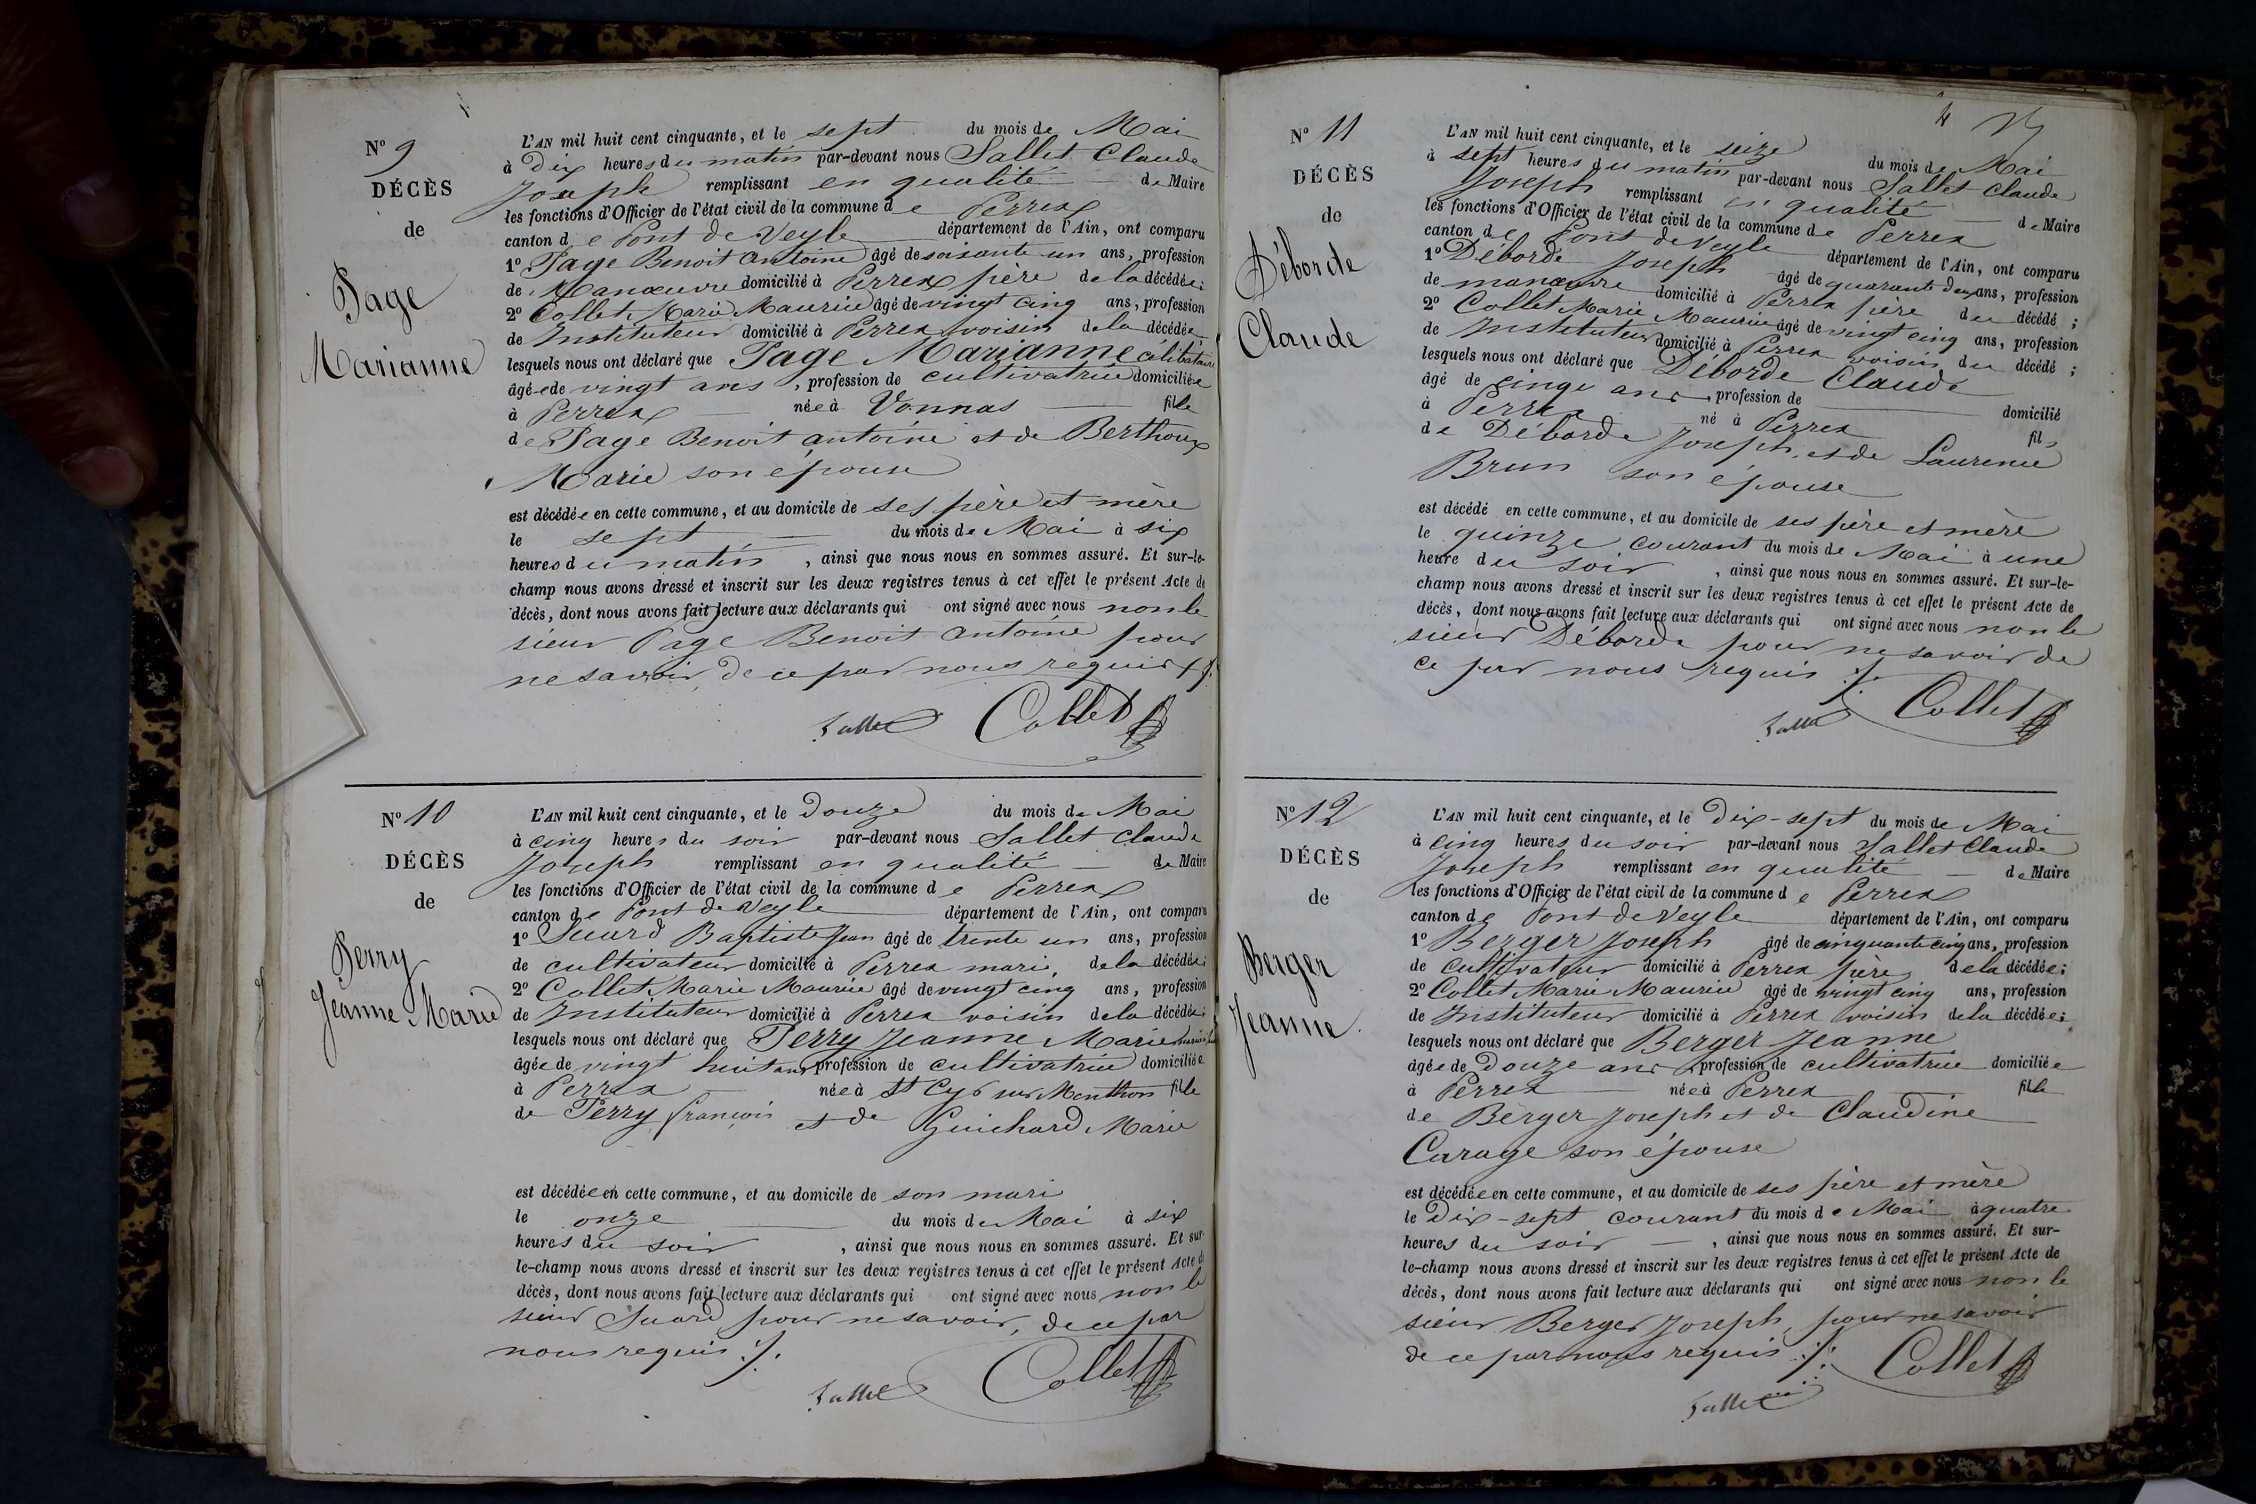 N° 9
DÉCÈS
de
Page
Marianne
L'AN mil huit cent cinquante, et le sept du mois de Mai
à Dix heures du matin par-devant nous Sallet Claude
Joseph remplissant en qualité de Maire
les fonctions d'Officier de l'état civil de la commune de Perrex
canton de Pont de Veyle département de l'Ain, ont comparu
1° Page Benoit antoine âgé de soisante un ans, profession
de Manœuvre domicilié à Perrex père de la décédée;
2° Collet Marie Maurice âgé de vingt cinq ans, profession
de Instituteur domicilié à Perrex voisin de la décédée
lesquels nous ont déclaré que Page Marianne célibataire
âgée de vingt ans, profession de cultivatrice domiciliée
à Perrex née à Vonnas fille
de Page Benoit antoine et de Berthoux
Marie son épouse
est décédée en cette commune, et au domicile de ses père et mère
le sept du mois de Mai à six
heures du matin, ainsi que nous nous en sommes assuré. Et sur-le-
champ nous avons dressé et inscrit sur les deux registres tenus à cet effet le présent Acte de
décès, dont nous avons fait lecture aux déclarants qui ont signé avec nous non le
sieur Page Benoit antoine pour
ne savoir, de ce par nous requis ./.
Sallet Collet
N° 10
DÉCÈS
de
Perry
Jeanne Marie
L'AN mil huit cent cinquante, et le Douze du mois de Mai
à cinq heures du soir par-devant nous Sallet Claude
Joseph remplissant en qualité de Maire
les fonctions d'Officier de l'état civil de la commune de Perrex
canton de Pont de Veyle département de l'Ain, ont comparu
1° Suard Baptiste Jean âgé de trente un ans, profession
de cultivateur domicilié à Perrex mari, de la décédée;
2° Collet Marie Maurice âgé de vingt cinq ans, profession
de Instituteur domicilié à Perrex voisin de la décédée;
lesquels nous ont déclaré que Perry Jeanne Marie
âgée de vingt huit ans profession de cultivatrice domiciliée
à Perrex née à St Cyr sur Menthon fille
de Perry françois et de Guichard Marie
est décédée en cette commune, et au domicile de son mari
le onze du mois de Mai à six
heures du soir, ainsi que nous nous en sommes assuré. Et sur-
le-champ nous avons dressé et inscrit sur les deux registres tenus à cet effet le présent Acte de
décès, dont nous avons fait lecture aux déclarants qui ont signé avec nous non le
sieur Suard pour ne savoir, de ce par
nous requis ./.
Sallet Collet
4
N° 11
DÉCÈS
de
Déborde
Claude
L'AN mil huit cent cinquante, et le seize du mois de Mai
à sept heures du matin par-devant nous Sallet Claude
Joseph remplissant en qualité de Maire
les fonctions d'Officier de l'état civil de la commune de Perrex
canton de Pont de Veyle département de l'Ain, ont comparu
1° Déborde Joseph âgé de quarante deux ans, profession
de manœuvre domicilié à Perrex père du décédé;
2° Collet Marie Maurice âgé de vingt cinq ans, profession
de Instituteur domicilié à Perrex voisin du décédé;
lesquels nous ont déclaré que Déborde Claude
âgé de cinq ans, profession de domicilié
à Perrex né à Perrex fils
de Déborde Joseph, et de Laurence
Brun son épouse
est décédé en cette commune, et au domicile de ses père et mère
le quinze courant du mois de Mai à une
heure du soir, ainsi que nous nous en sommes assuré. Et sur-le-
champ nous avons dressé et inscrit sur les deux registres tenus à cet effet le présent Acte de
décès, dont nous avons fait lecture aux déclarants qui ont signé avec nous non le
sieur Déborde pour ne savoir de
ce par nous requis ./.
Sallet Collet
N° 12
DÉCÈS
de
Berger
Jeanne.
L'AN mil huit cent cinquante, et le Dix-sept du mois de Mai
à cinq heures du soir par-devant nous Sallet Claude
Joseph remplissant en qualité de Maire
les fonctions d'Officier de l'état civil de la commune de Perrex
canton de Pont de Veyle département de l'Ain, ont comparu
1° Berger Joseph âgé de cinquante cinq ans, profession
de cultivateur domicilié à Perrex père de la décédée;
2° Collet Marie Maurice âgé de vingt cinq ans, profession
de Instituteur domicilié à Perrex voisin de la décédée;
lesquels nous ont déclaré que Berger Jeanne
âgée de Douze ans, profession de cultivatrice domiciliée
à Perrex née à Perrex fille
de Berger Joseph et de Claudine
Curage son épouse
est décédée en cette commune, et au domicile de ses père et mère
le Dix-sept courant du mois de Mai à quatre
heures du soir, ainsi que nous nous en sommes assuré. Et sur-
le-champ nous avons dressé et inscrit sur les deux registres tenus à cet effet le présent Acte de
décès, dont nous avons fait lecture aux déclarants qui ont signé avec nous non le
sieur Berger Joseph, pour ne savoir
de ce par nous requis ./.
Collet
Sallet